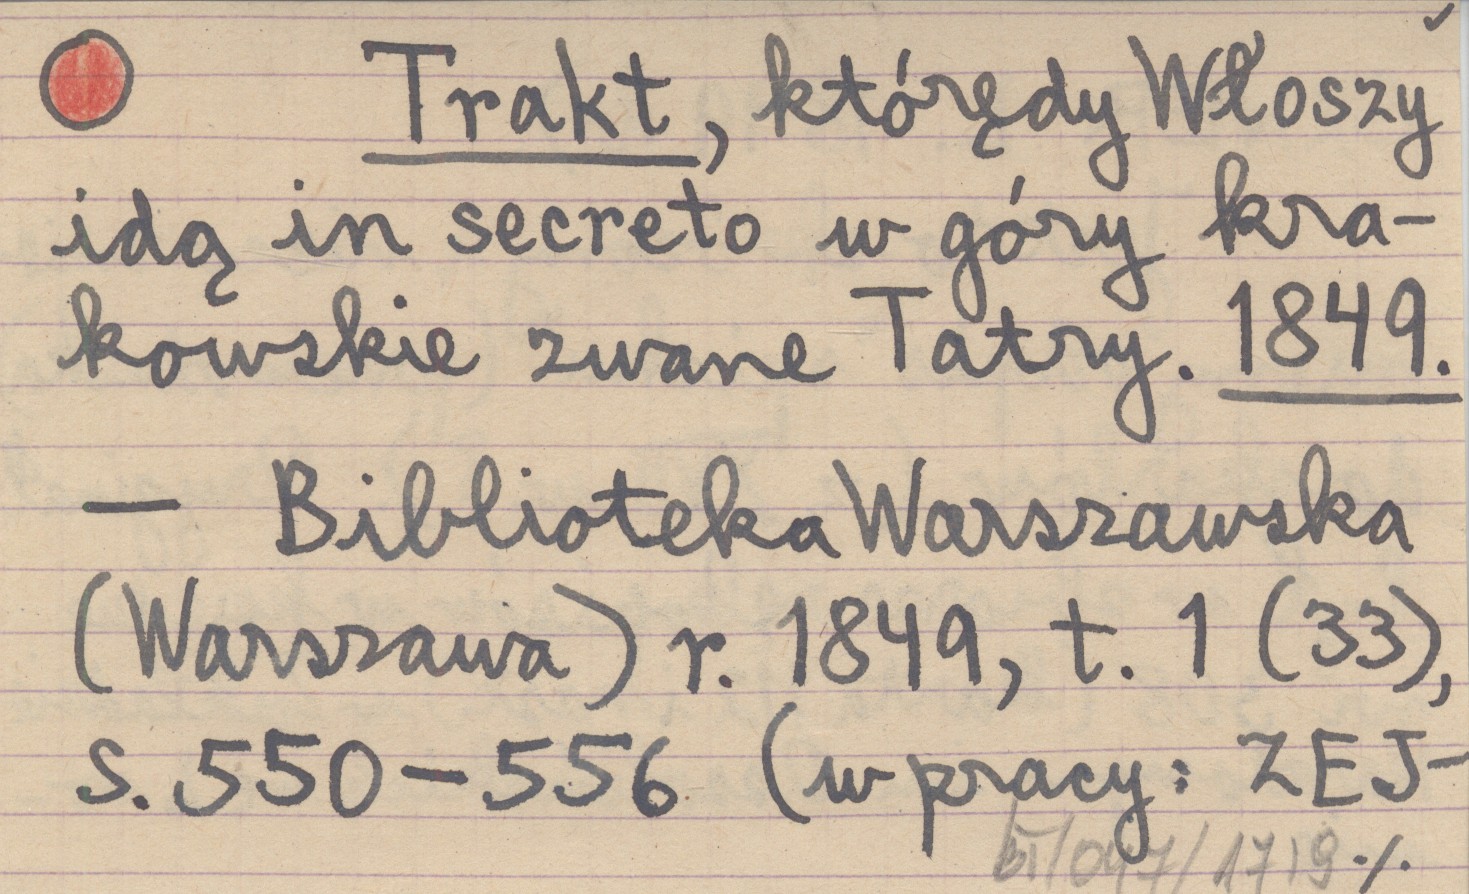 Trakt, którędy Włoszy
idą in secreto w góry kra-
kowskie zwane Tatry. 1849.
— Biblioteka Warszawska
(Warszawa) r. 1849, t. 1 (33),
s. 550-556 (w pracy: ZEJ-
/047/1719 ./.